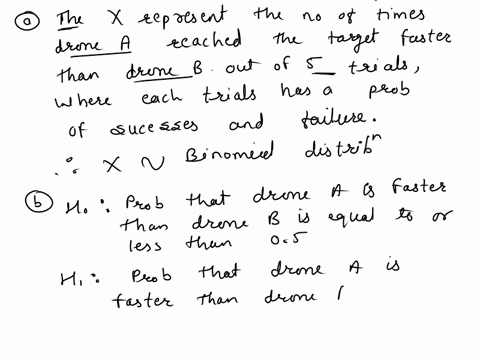 (a) The X represent the no of times
drone A reached the target faster
than drone B out of 5 trials,
where each trials has a prob
of sucesses and failure.
∴ X ~ Binomial distribⁿ
(b) H₀ : Prob that drone A is faster
than drone B is equal to or
less than 0.5
H₁ : Prob that drone A is
faster than drone